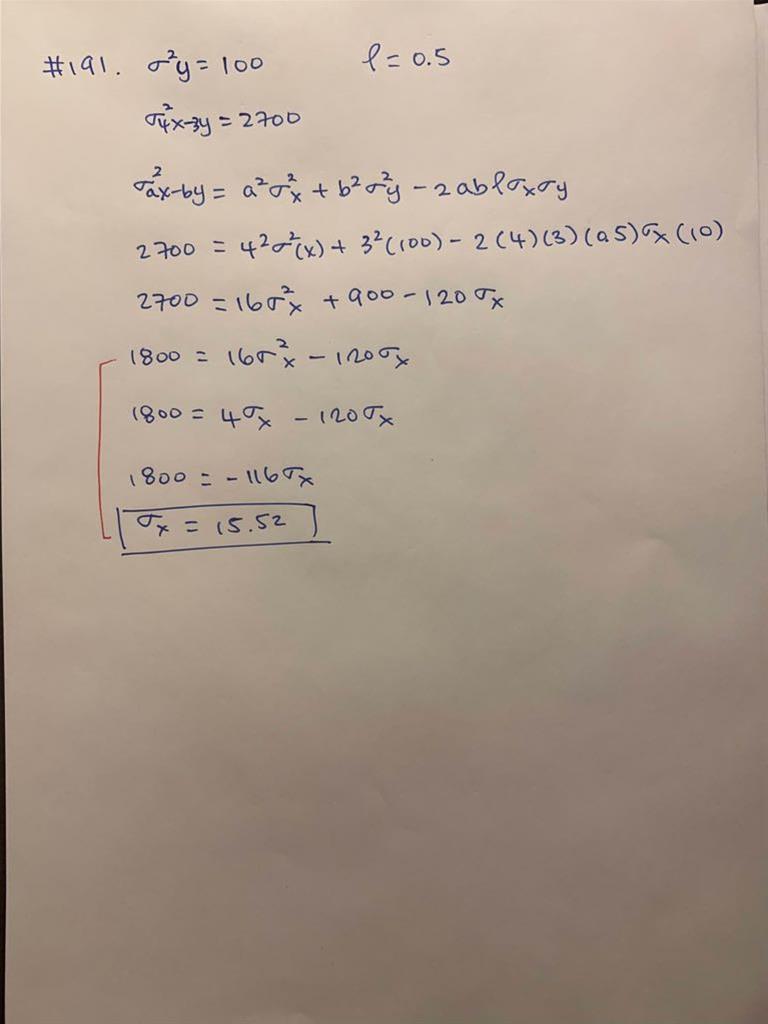 #191. σ²y = 100 ρ = 0.5
σ²4x-3y = 2700
σ²ax-by = a²σ²x + b²σ²y - 2abρσxσy
2700 = 4²σ²(x) + 3²(100) - 2(4)(3)(0.5)σx(10)
2700 = 16σ²x + 900 - 120σx
1800 = 16σ²x - 120σx
1800 = 4σx - 120σx
1800 = -116σx
σx = 15.52